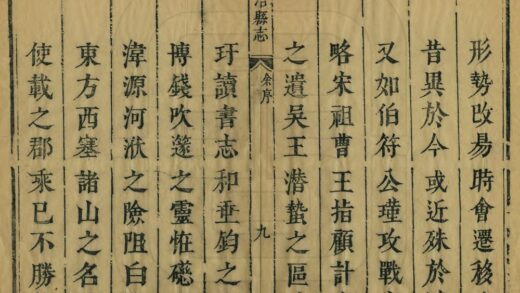 形勢改易時會遷移
昔異於今或近殊於
又如伯符公瑾攻戰
略宋祖曹王指顧計
之遺吳王潛蟄之區
縣志
余序
九
玗讀書志和垂釣之
博錢吹篴之靈恠礠
湋源河洑之險阻白
東方西塞諸山之名
使載之郡乘已不勝